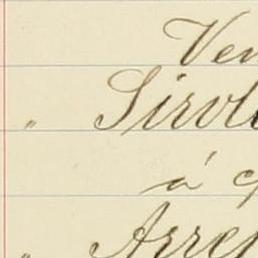 Ven
" Sirvl
á c
" Arre